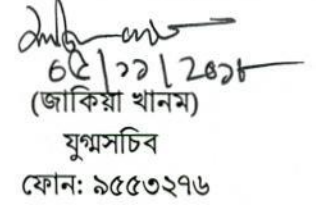 ০৫/১১/২০১৮
(জাকিয়া খানম)
যুগ্মসচিব
ফোন: ৯৫৫৩২৭৬